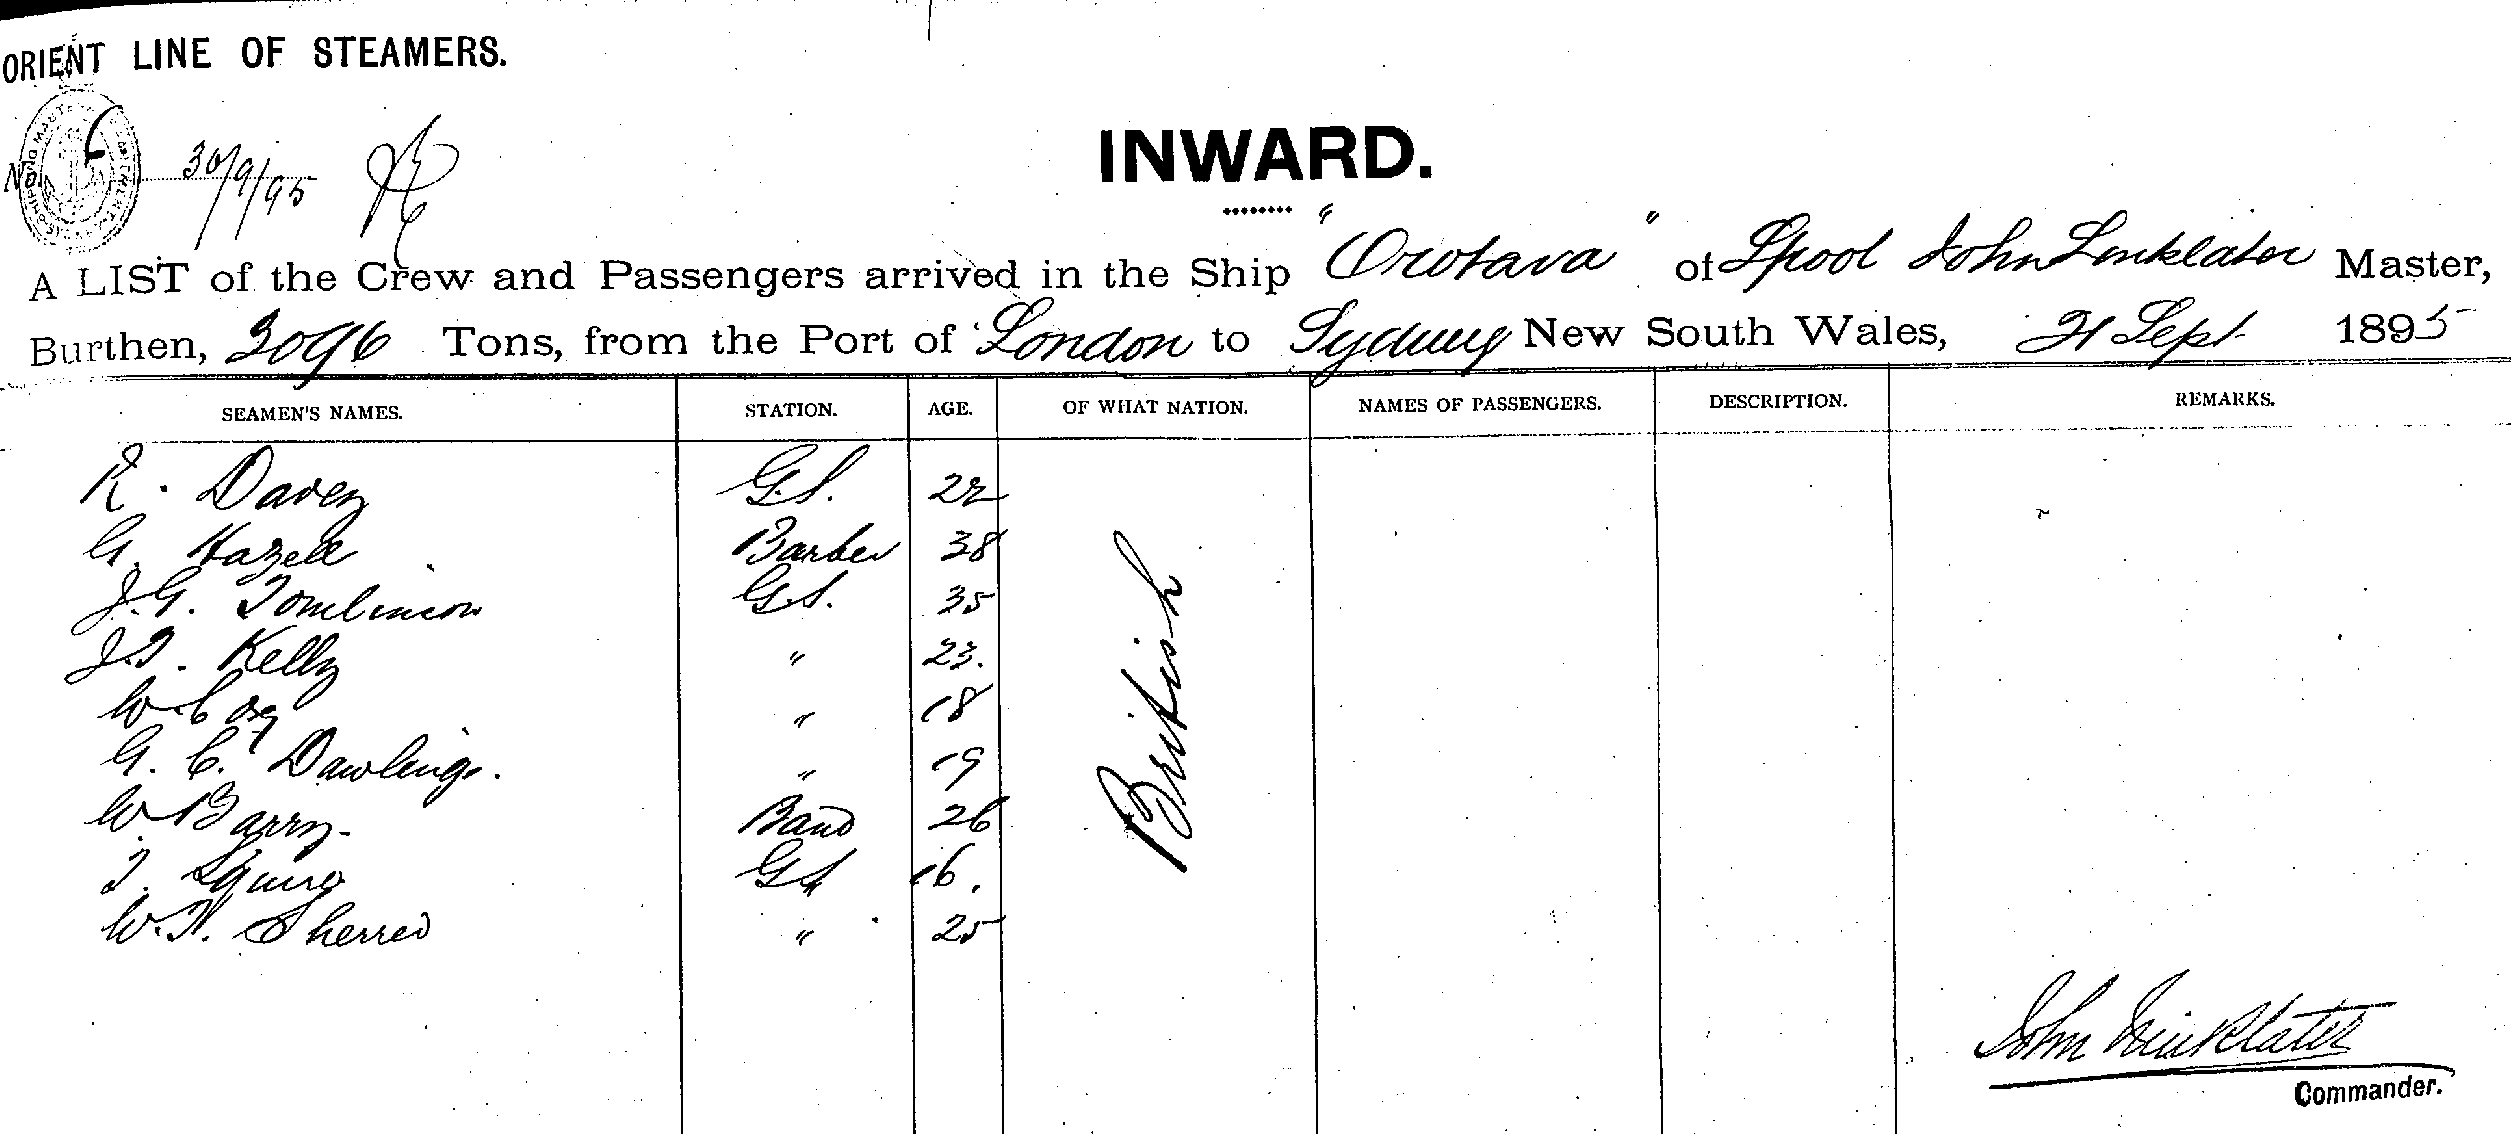 ORIENT LINE OF STEAMERS.
No. 30/9/95
INWARD.
A LIST of the Crew and Passengers arrived in the Ship "Orotava" of Lpool John Linklater Master,
Burthen, 3096 Tons, from the Port of London to Sydney New South Wales, 21 Sept 1895
SEAMEN'S NAMES. STATION. AGE. OF WHAT NATION. NAMES OF PASSENGERS. DESCRIPTION. REMARKS.
R. Davey G.S. 22
G. Hazell Barber 38
J.G. Tomlinson G.S. 35
J.T. Kelly " 23.
W. Coy " 18
G. C. Dawlings. " 19
W. Barry Band 26
T. Squire GS 16.
W.H. Sherred " 25
British
John Linklater
Commander.